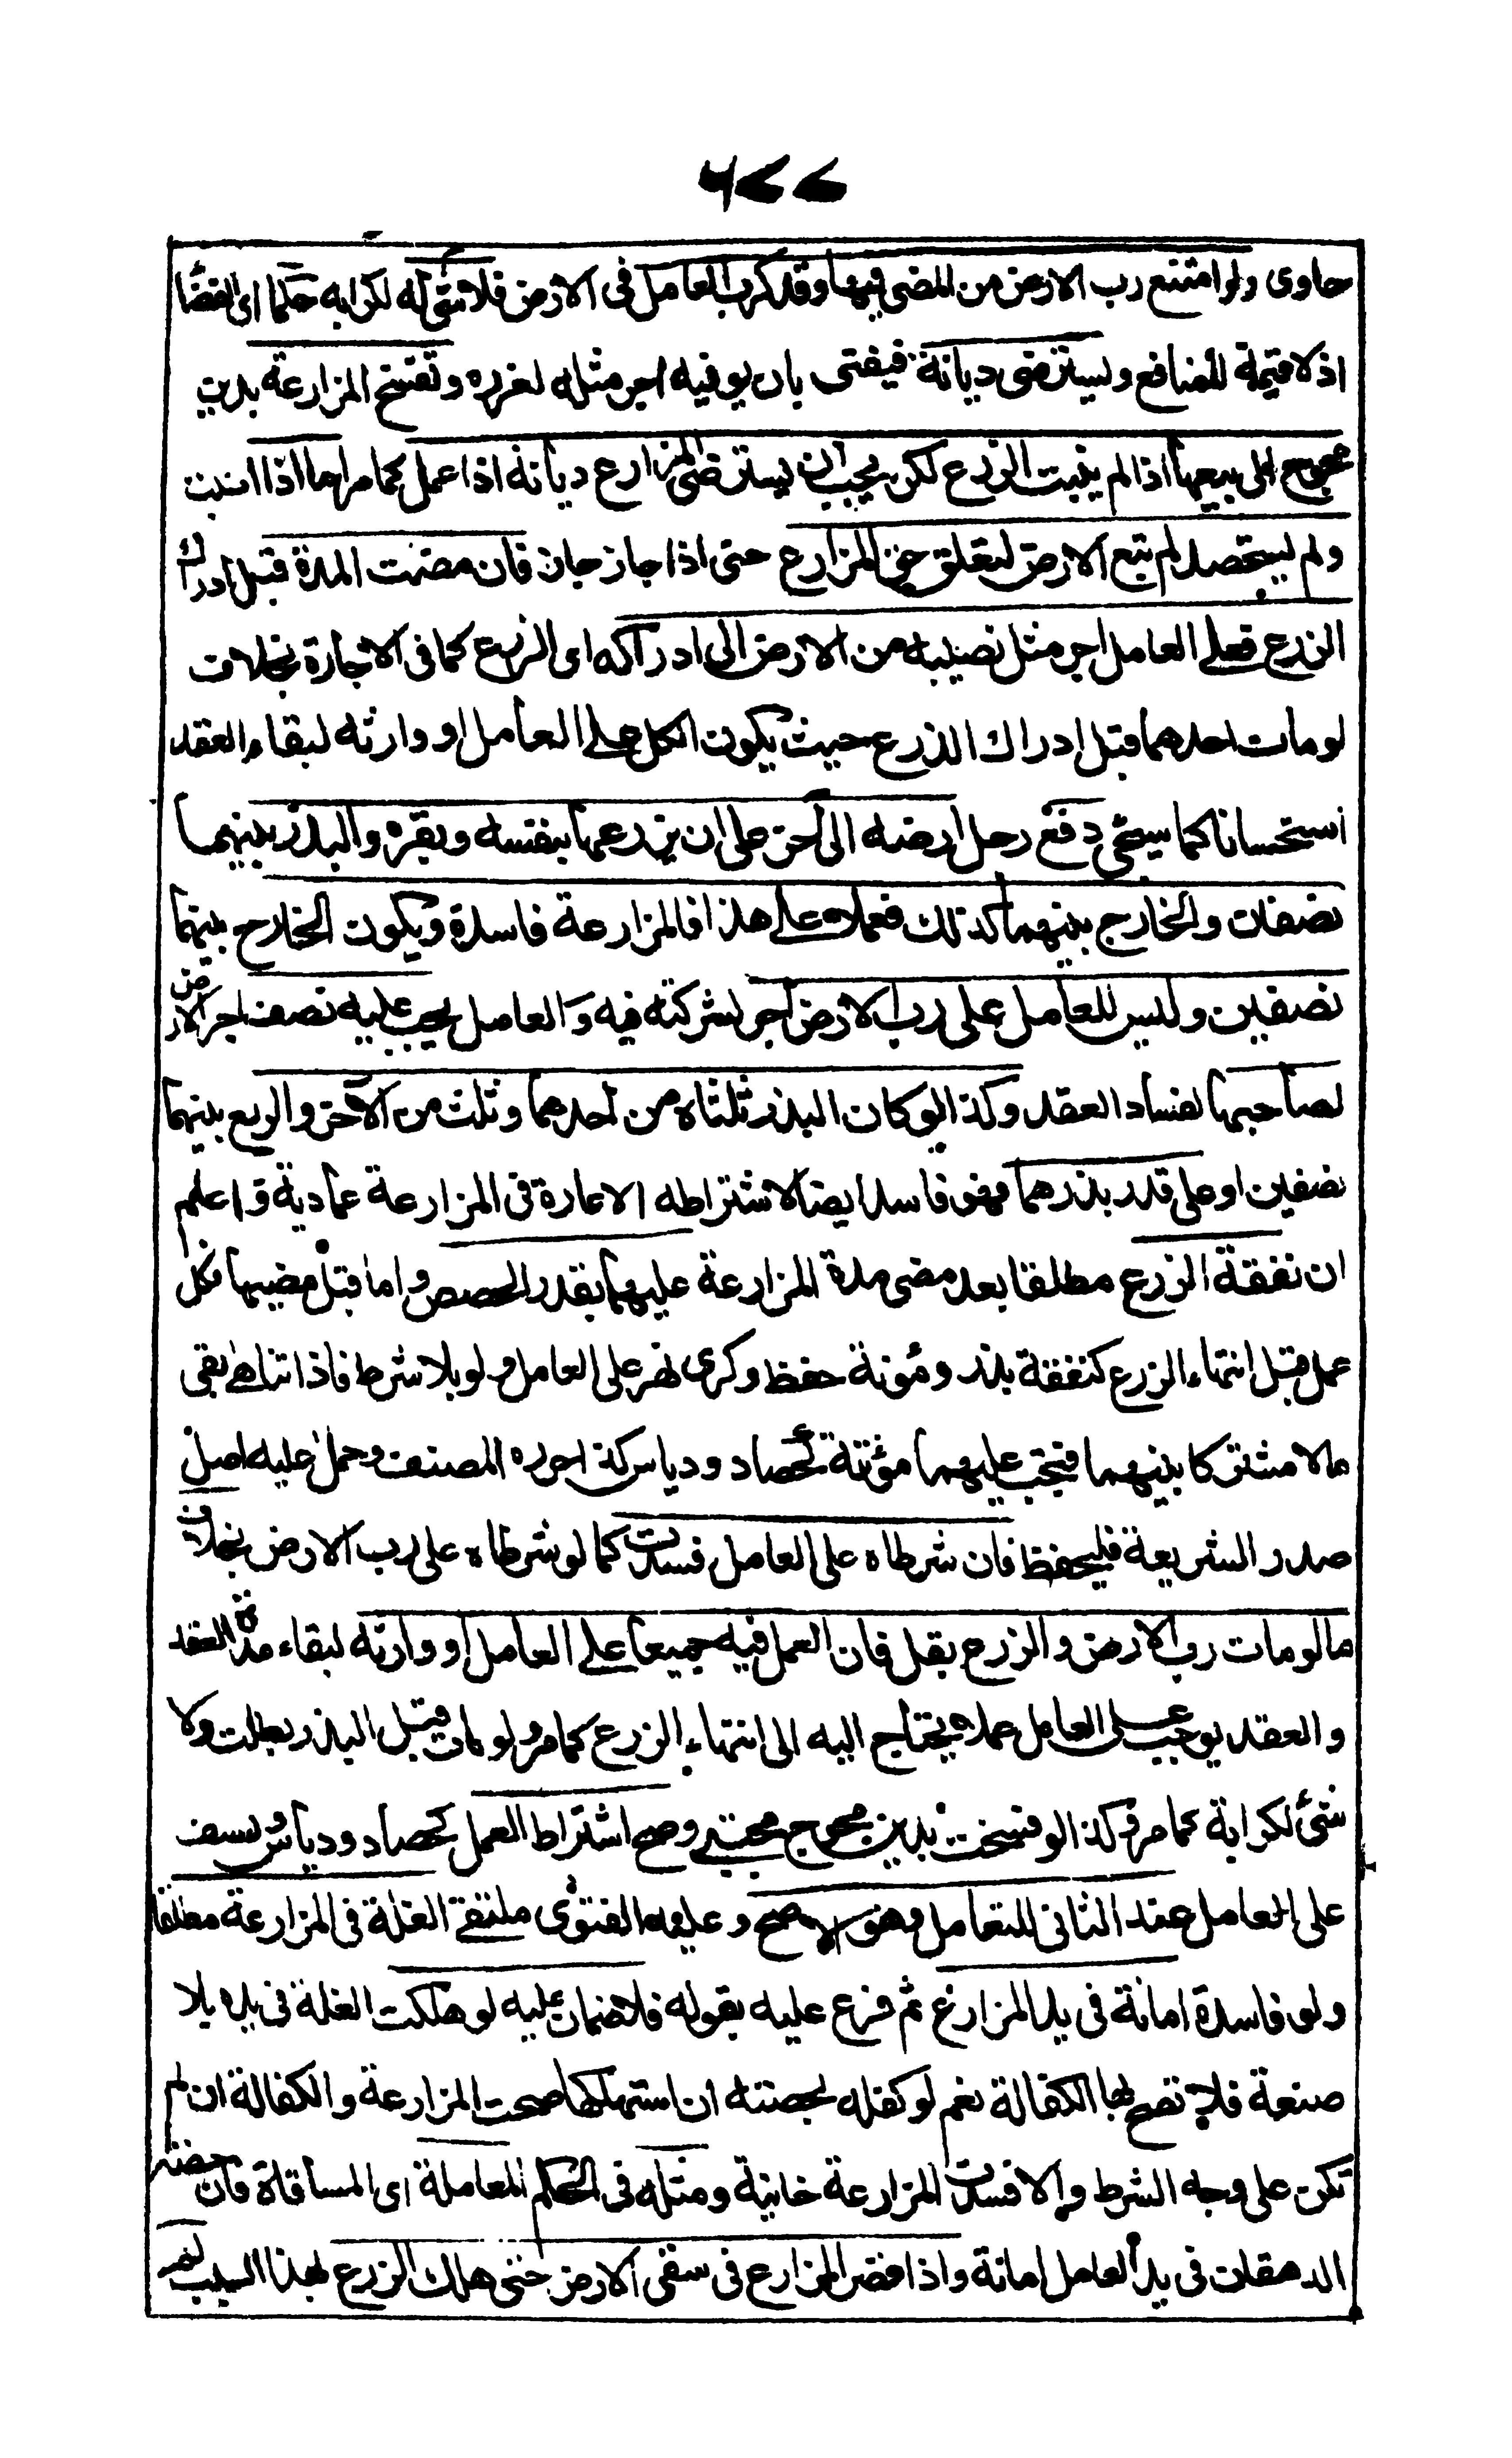 ٦٢٢
حاوى ولو امتنع رب الارض من المضى فيها وقد كرب العامل فى الارض فلا شئ له لكرابه حكما اى القضا
اذ لا قيمة للمنافع ويسترضى ديانة فيفتى بان يوفيه اجر مثله لغرره وتفسخ المزارعة بدين
محوج الى بيعها اذا لم ينبت الزرع لكن يجب ان يسترضى المزارع ديانة اذا عمل كما مر اما اذا انبت
ولم يستحصد لم تبع الارض لتعلق حق المزارع حتى اذا جاز جاز فان مضت المدة قبل ادراك
الزرع فعلى العامل اجر مثل نصيبه من الارض الى ادراكه اى الزرع كما فى الاجارة بخلاف
لو مات احدهما قبل ادراك الذرع حيث يكون الكل على العامل او وارثه لبقاء العقد
استحسانا كما سيجئ دفع رجل ارضه الى آخر على ان يزرعها بنفسه وبقره والبذر بينهما
نصفان والخارج بينهما كذلك فعملاه على هذا فالمزارعة فاسدة ويكون الخارج بينهما
نصفين وليس للعامل على رب الارض اجر لشركته فيه و العامل يجب عليه نصف اجر الارض
لصاحبها لفساد العقد وكذا لو كان البذر ثلثاه من احدهما وثلث من الآخر والريع بينهما
نصفين او على قدر بذرهما فهو فاسد ايضا لاشتراطه الاعارة فى المزارعة عمادية واعلم
ان نفقة الزرع مطلقا بعد مضى مدة المزارعة عليهما بقدر الحصص واما قبل مضيها فكل
عمل قبل انتهاء الزرع كنفقة بذر ومؤنة حفظ وكرى نهر على العامل ولو بلا شرط فاذا تناهى بقى
مالا مشتركا بينهما فتجب عليهما مؤنته كحصاد ودياس كذا حرره المصنف وحمل عليه اصل
صدر الشريعة فليحفظ فان شرطاه على العامل فسدت كما لو شرطاه على رب الارض بخلاف
ما لو مات رب الارض والزرع بقل فان العمل فيه جميعا على العامل او وارثه لبقاء مدة العقد
والعقد يوجب على العامل عملا يحتاج اليه الى انتهاء الزرع كما مر ولو مات قبل البذر بطلت ولا
شئ لكرابة كما مر وكذا لو فسخت بدين محوج مجتبى وصح اشتراط العمل كحصاد ودياس ونسف
على العامل عند الثانى للتعامل وهو الاصح وعليه الفتوى ملتقى الغلة فى المزارعة مطلقا
ولو فاسدة امانة فى يد المزارع ثم فرع عليه بقوله فلا ضمان عليه لو هلكت الغلة فى يده بلا
صنعة فلا تصح لها الكفالة نعم لو كفله بحصته ان استهلكها صحت المزارعة والكفالة ان لم
تكن على وجه الشرط والا فسدت المزارعة خانية ومثله فى الحكم المعاملة اى المساقاة فان حصة
الدهقان فى يد العامل امانة واذا قصر المزارع فى سقى الارض حتى هلك الزرع بهذا السبب لم